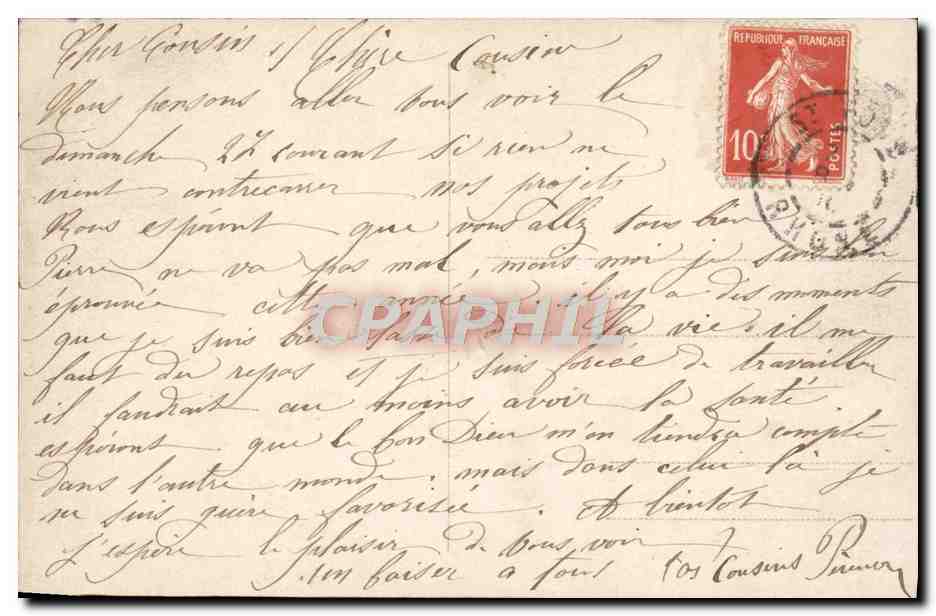 Cher Cousin et Chère Cousine
Nous pensons aller vous voir le
dimanche 27 courant si rien ne
vient contrecarrer nos projets
Nous espéront que vous allez tous bien
Pierre ne va pas mal, mais moi je suis bien
éprouvée cette année. il y a des moments
que je suis bien lasse de la vie. il me
faut du repos et je suis forcée de travailler
il faudrait au moins avoir la santé
espéront que le bon Dieu m'en tiendra compte
dans l'autre monde. mais dans celui là je
ne suis guère favorisée. A bientot
j'espère le plaisir de vous voir
un baiser a tous Vos Cousins
REPUBLIQUE FRANÇAISE
10
POSTES
CPAPHIL